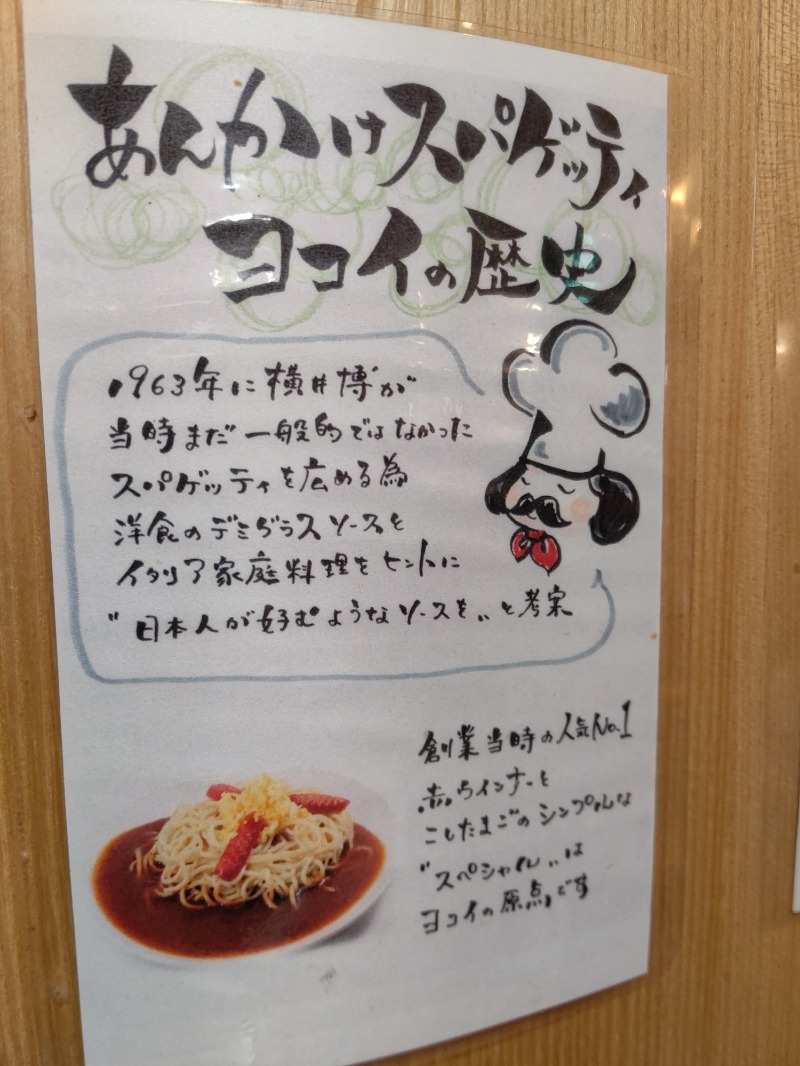 あんかけスパゲッティ
ヨコイの歴史
1963年に横井博が
当時まだ一般的ではなかった
スパゲッティを広める為
洋食のデミグラスソースと
イタリア家庭料理をヒントに
"日本人が好むようなソースを"と考案
創業当時の人気No.1
赤ウインナーと
こしたまごのシンプルな
"スペシャル"は
ヨコイの原点です